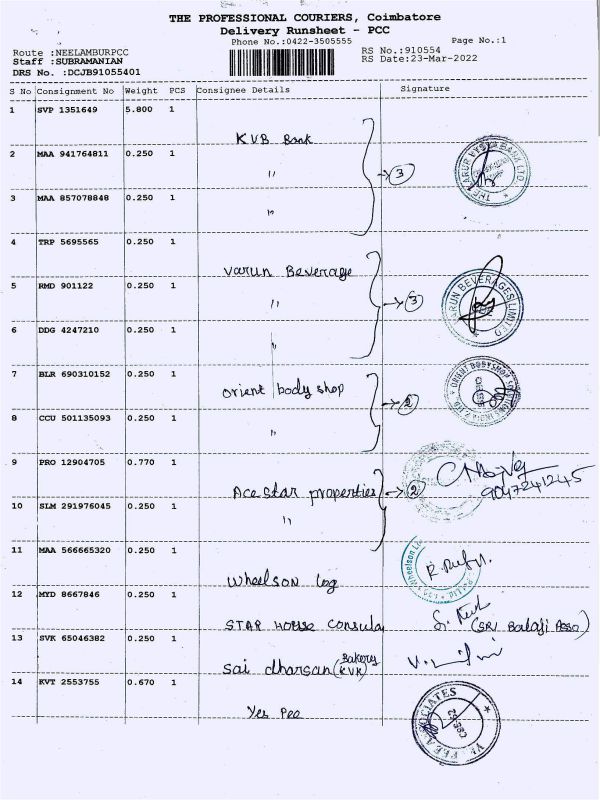 THE PROFESSIONAL COURIERS, Coimbatore
Delivery Runsheet - PCC
Phone No.:0422-3505555 Page No.:1
Route :NEELAMBURPCC RS No.:910554
Staff :SUBRAMANIAN RS Date:23-Mar-2022
DRS No. :DCJB91055401
S No Consignment No Weight PCS Consignee Details Signature
1 SVP 1351649 5.800 1
KVB Bank
2 MAA 941764811 0.250 1
" 3
3 MAA 857078848 0.250 1
"
4 TRP 5695565 0.250 1
Varun Beverage
5 RMD 901122 0.250 1
" 3
6 DDG 4247210 0.250 1
"
7 BLR 690310152 0.250 1
Orient body shop 2
8 CCU 501135093 0.250 1
"
9 PRO 12904705 0.770 1
Ace star properties 2
10 SLM 291976045 0.250 1
"
11 MAA 566665320 0.250 1
Wheelson Log
12 MYD 8667846 0.250 1
STAR House Consula (SRI Balaji Asso)
13 SVK 65046382 0.250 1
Sai dharsan (Bakery KVK)
14 KVT 2553755 0.670 1
Yes Pee
THE KARUR VYSYA BANK LTD.
VARUN BEVERAGES LIMITED
9047241245